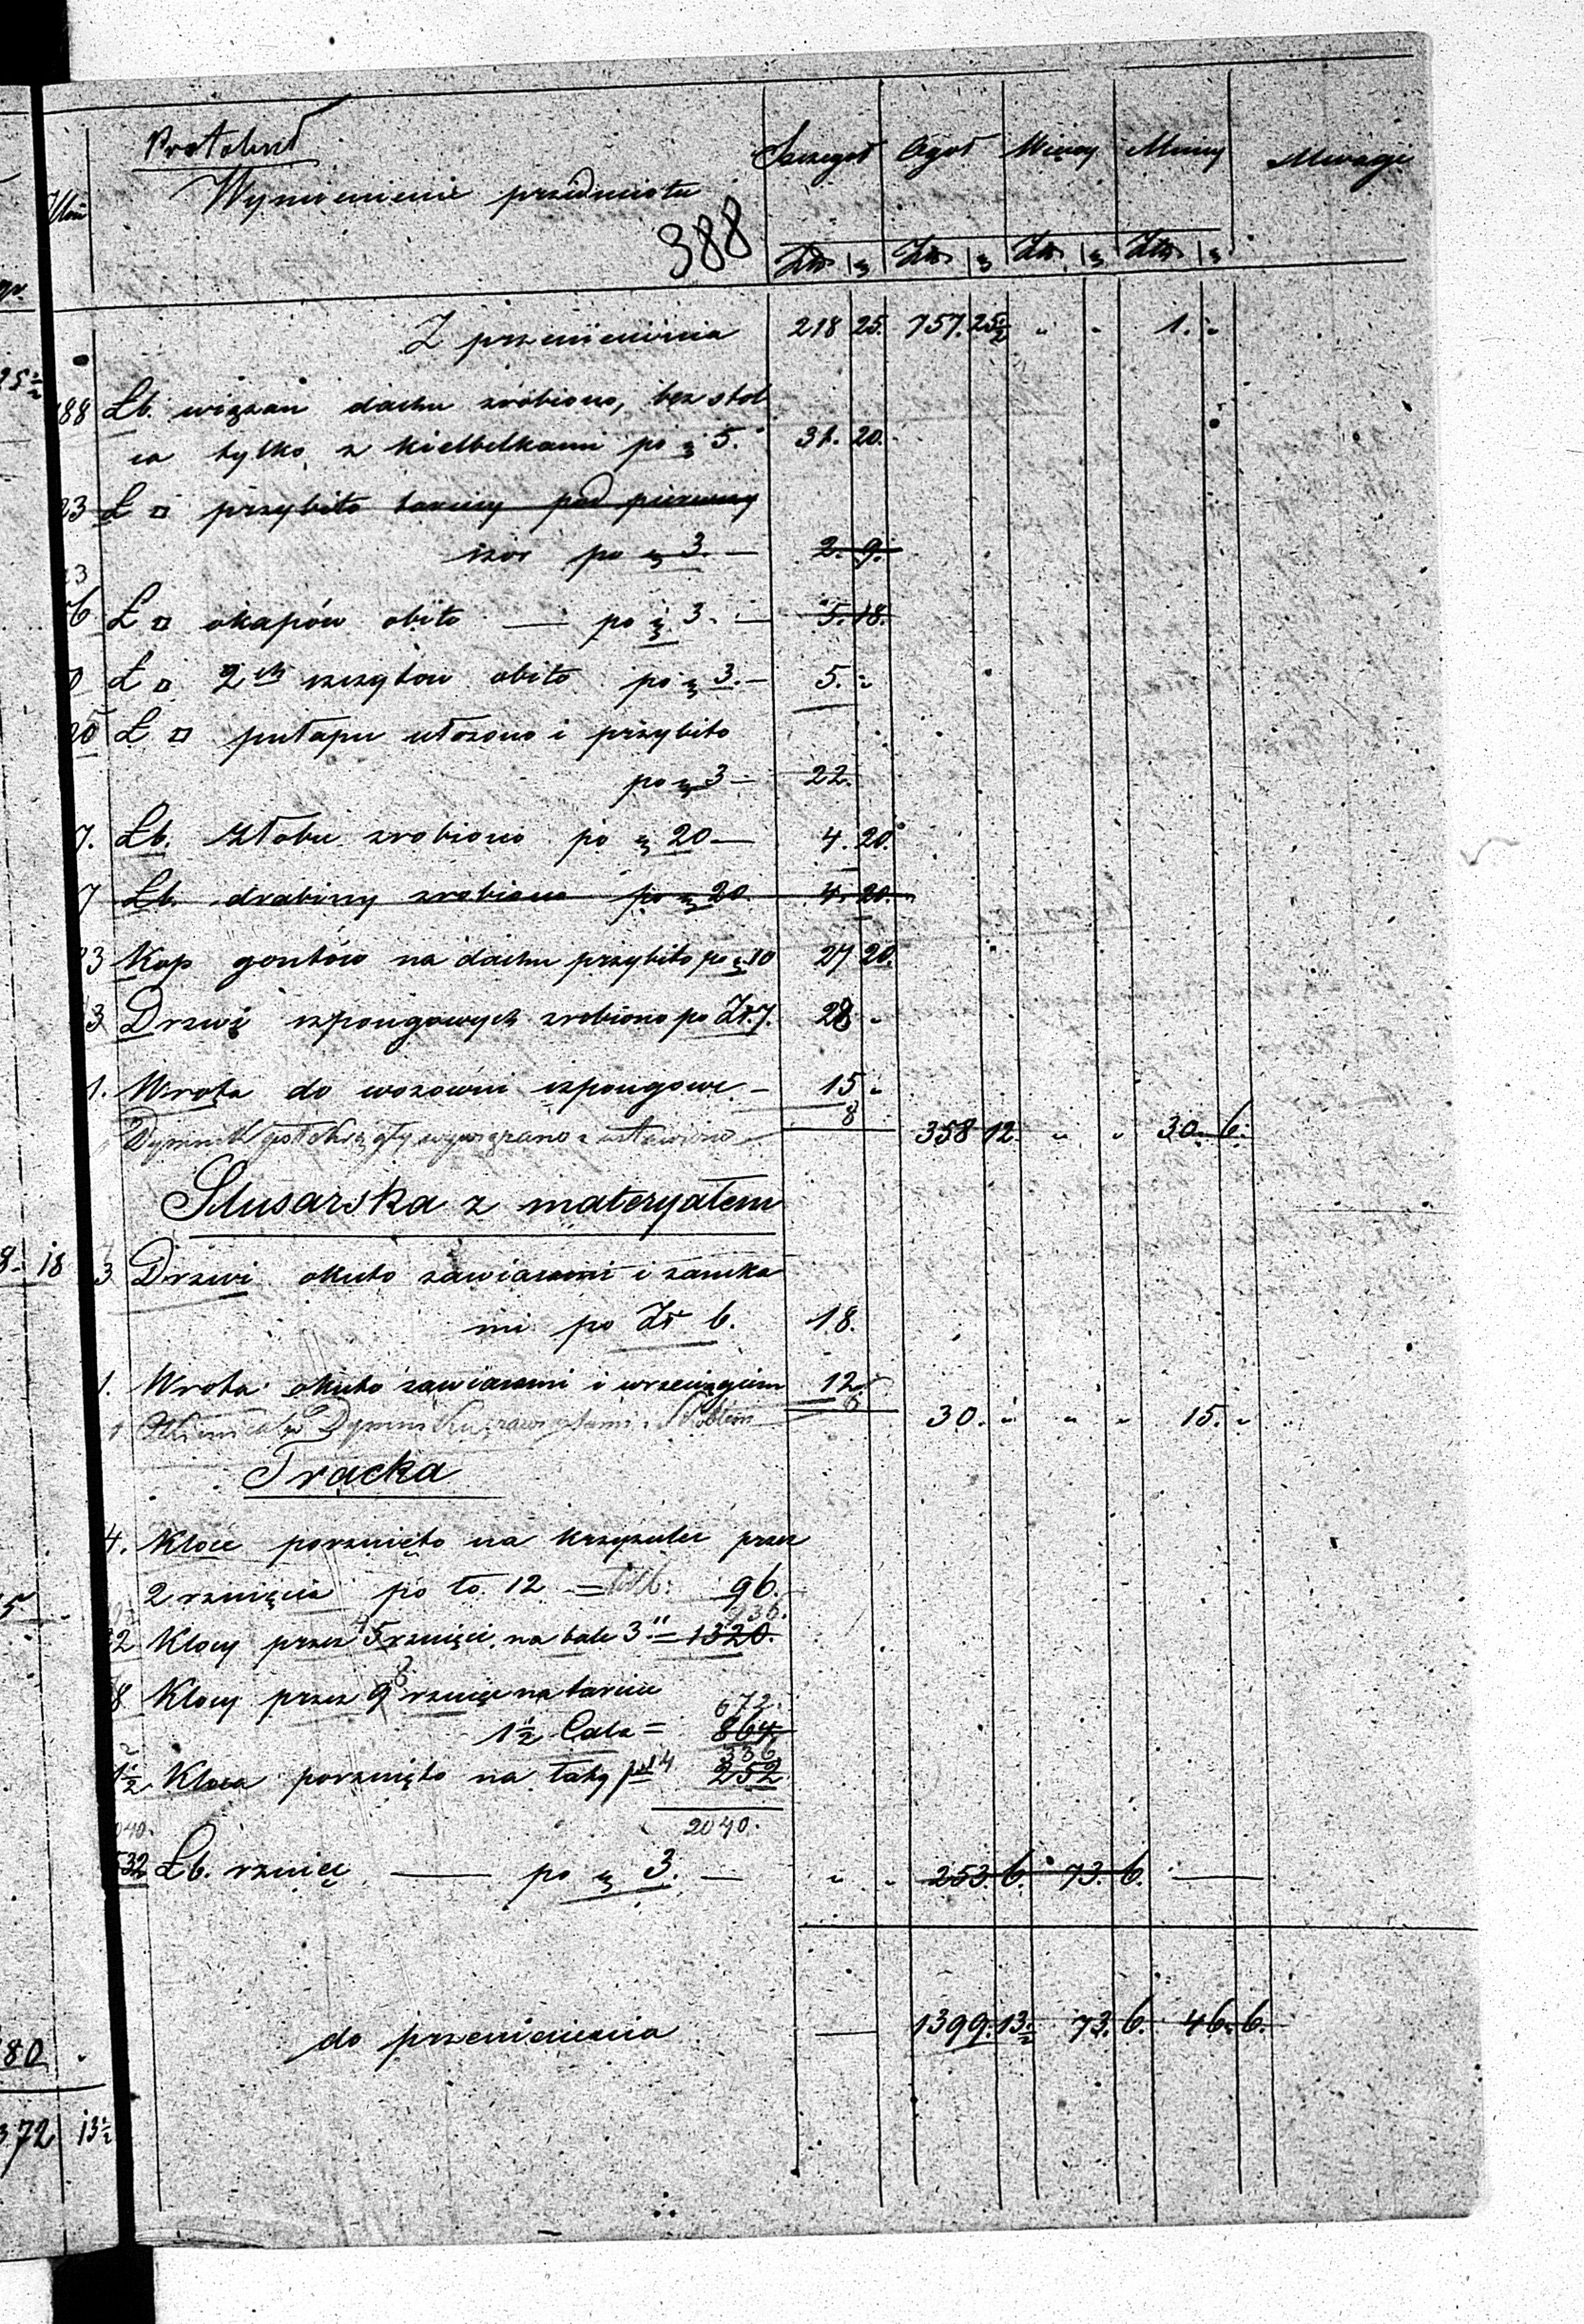 Protokuł
Wymienienie przedmiotu
388
Szczegół Ogół Więcej Mniej Uwagi
Złp gr Złp gr Złp gr Złp gr
Z przeniesienia 218 25. 757. 25½ " " 1. "
188 Łb. wiązań dachu zrobiono, bez stol
ca tylko z kielbelkami po gr 5. 31. 20.
23 Ł □ przybito tarcicy pod pierwszy
szor po gr 3. — 2. 9.
Ł □ okapów obito — po gr 3. — 5. 18.
Ł □ 2ch szczytów obito po gr 3. — 5. "
Ł □ pułapu ułożono i przybito
po gr 3 — 22.
7. Łb. żłobu zrobiono po gr 20 — 4. 20.
7 Łb. drabiny zrobiono po gr 20. 4. 20.
Kop gontów na dachu przybito po gr. 10 27 20.
3 Drzwi szpongowych zrobiono po Zł. 7. 28. "
1. Wrota do wozowni szpongowe — 15 "
8
Dymnik 358 12. " " 30. 6.
Slusarska z materyałem
3 Drzwi okuto zawiasami i zamka
mi po Zł 6. 18.
1. Wrota okuto zawiasami i wrzeciągiem 12
6
30. " " " 15. "
Tracka
4. Kloce porznięto na krzyżulce przez
2 rznięcia po Ło. 12 = 96.
936.
Klocy przez 5 rznięć na bale 3" = 1320.
8 Klocy przez 9 rznięć na tarcice
672.
1½ Cala = 864.
336
1½ Kloca porznięto na łaty 252
2040.
532 Łb. rznięć — po gr 3. — " " 253. 6. 73. 6. —
do przeniesienia — 1399. 13½ 73. 6. 46. 6.
80
372 13½